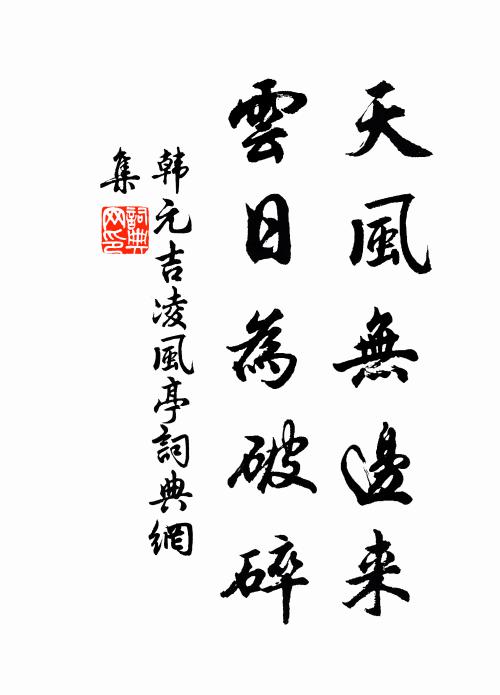 天風無邊来
雲日為破碎
韩元吉凌風亭詞典網
集
詞典网印